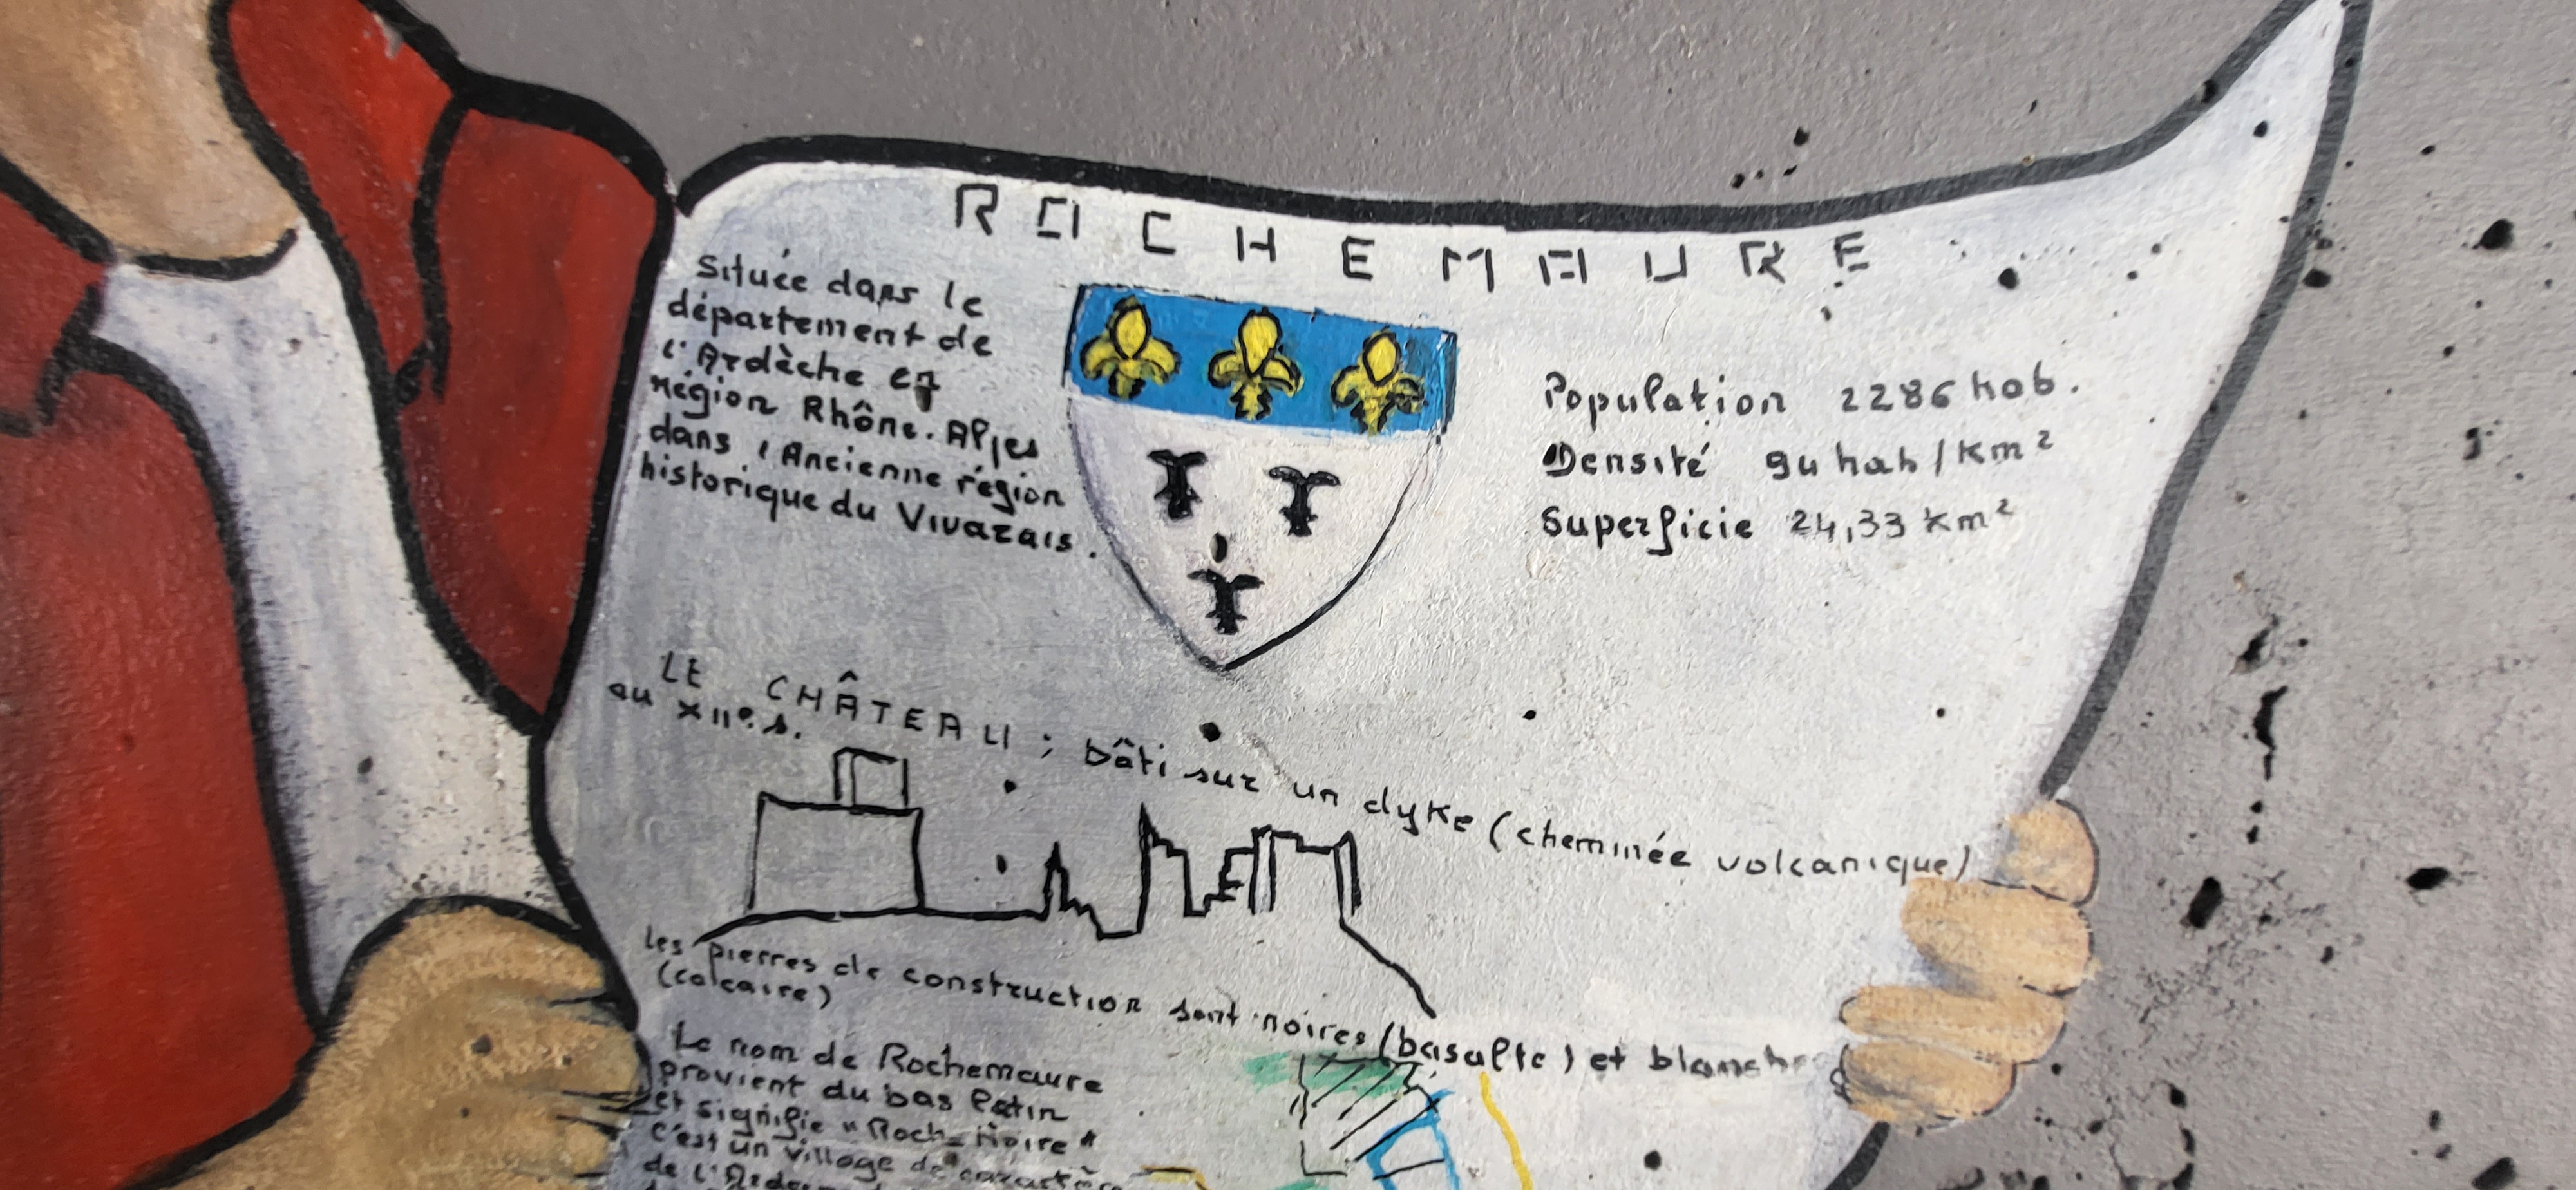 ROCHEMAURE
Située dans le
département de
l'Ardèche en
région Rhône.Alpes
dans l'Ancienne région
historique du Vivarais.
Population 2286 hab.
Densité 94 hab/km²
Superficie 24,33 km²
LE CHÂTEAU ; bâti sur un dyke (cheminée volcanique)
au XIIe.s.
les pierres de construction sont noires (basalte) et blanches
(calcaire)
Le nom de Rochemaure
provient du bas latin
et signifie "Roch_Noire"
c'est un village de caractère
de l'Ardèche